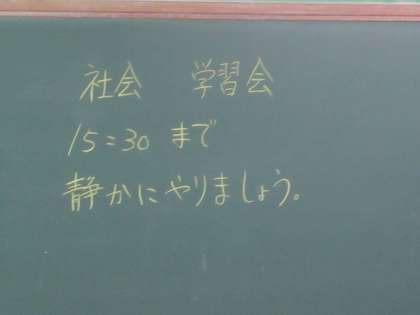 社会 学習会
15:30 まで
静かにやりましょう。